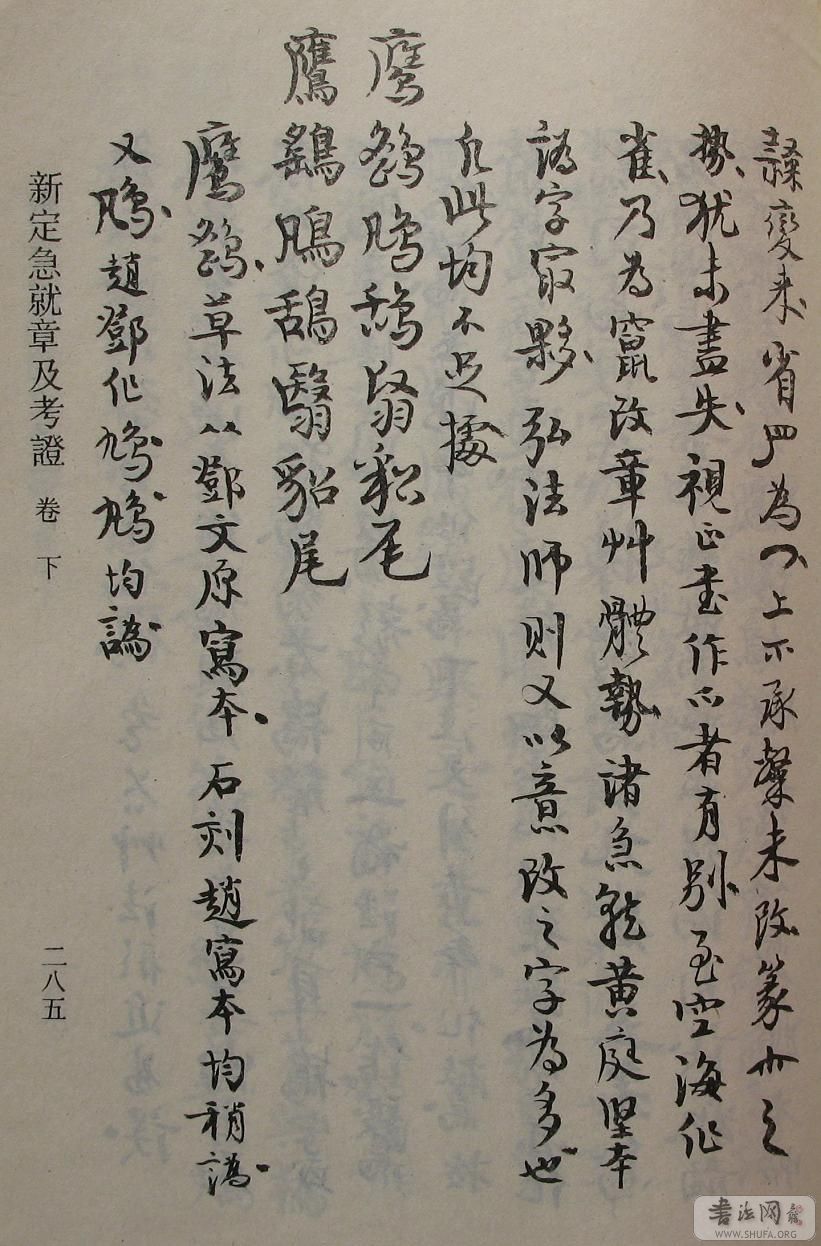 隸變來省罒為爫上爪承聲未改篆艸之
勢猶未盡失視正書作爫者有別至空海作
雀乃為竄改章艸體勢諸急就黃庭堅本
譌字最夥弘法師則又以意改之字為多也
凡此均不足據
鷹鷂鴇鴰翳貂尾
鷹鷂鴇鴰翳貂尾
鷹鷂草法从鄧文原寫本石刻趙寫本均稍譌
又鴇趙鄧作鴆鴆均譌
新定急就章及考證 卷 下
二八五
書法网
WWW.SHUFA.ORG